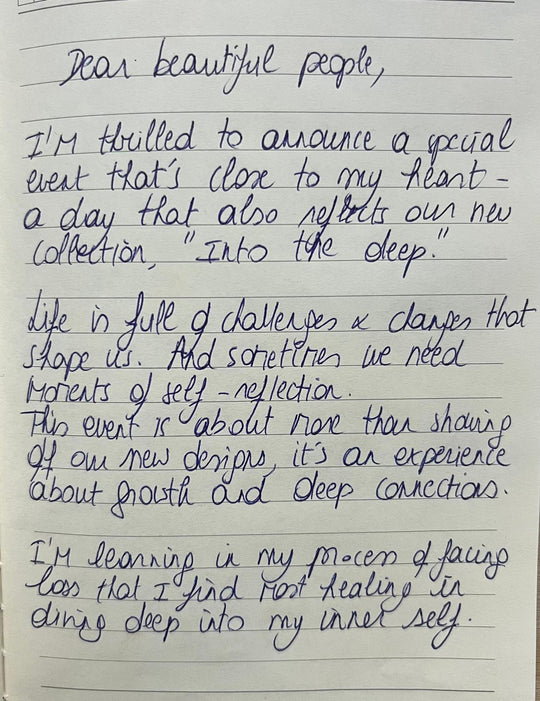 Dear beautiful people,
I'M thrilled to announce a special
event that's close to my heart -
a day that also reflects our new
collection, "Into the deep."
Life is full of challenges & changes that
shape us. And sometimes we need
Moments of self-reflection.
This event is about more than showing
off our new designs, it's an experience
about growth and deep connections.
I'M learning in my process of facing
loss that I find most healing in
diving deep into my inner self.